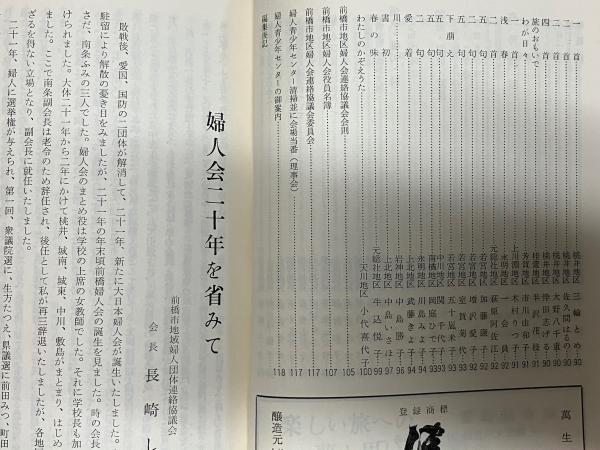 一首
二首
四首
旅のおもいで
わが日々
一首
浅春
一首
二句
下萌え
五句
五句
五句
愛着
川
書初
春の味
わたしのかぞえうた
前橋市地区婦人会連絡協議会会則
前橋市地区婦人会役員名簿
前橋市地区婦人会連絡協議会委員会
婦人青少年センター清掃並に会場当番(理事会)
婦人青少年センターの御案内
編集後記
桃井地区 三輪とめ
桃井地区 佐久間はるの
桃井地区 大野八千重
桃井地区 仲田志げる
桂萱地区 井沢花枝
芳賀地区 市川由和子
上川淵地区 木村りつ
元総社地区 萩原阿佐江
若宮地区 加藤歳子
若宮地区 増沢愛子
若宮地区 室賀菊代
若宮地区 五十嵐米
中川地区 関千代
南橘地区 岡庭ひろ
永明地区 川島みよ
上北地区 武藤きよ子
岩神地区 中島勝子
上北地区 中島いさほ
元総社地区 牛込悦子
天川地区 小代喜代
90
90
90
90
91
91
92
92
93
93
94
94
95
96
97
99
100
105
107
117
117
118
登録商標
萬生
醸造元
婦人会二十年を省みて
前橋市地域婦人団体連絡協議会
会長 長崎し
敗戦後、愛国、国防の二団体が解消して、二十一年、新たに大日本婦人会が誕生いたしました。
駐留により解散の憂き日をみましたが、二十一年の年末頃前橋婦人会の誕生を見ました。時の会長
さだ、南条ふみの三人でした。婦人会のまとめ役は学校の上席の女教師でした。それに学校長も加
けられました。大体二十一年から二年にかけて桃井、城南、城東、中川、敷島がまとまり、はじめ
ました。ここで南条副会長は老令のため辞任され、後任として私が再三辞退いたしましたが、各地
ざるを得ない立場となり、副会長に就任いたしました。
二十一年、婦人に選挙権が与えられ、第一回、衆議院選に、生方たつえ、県議選に前田みつ、町田